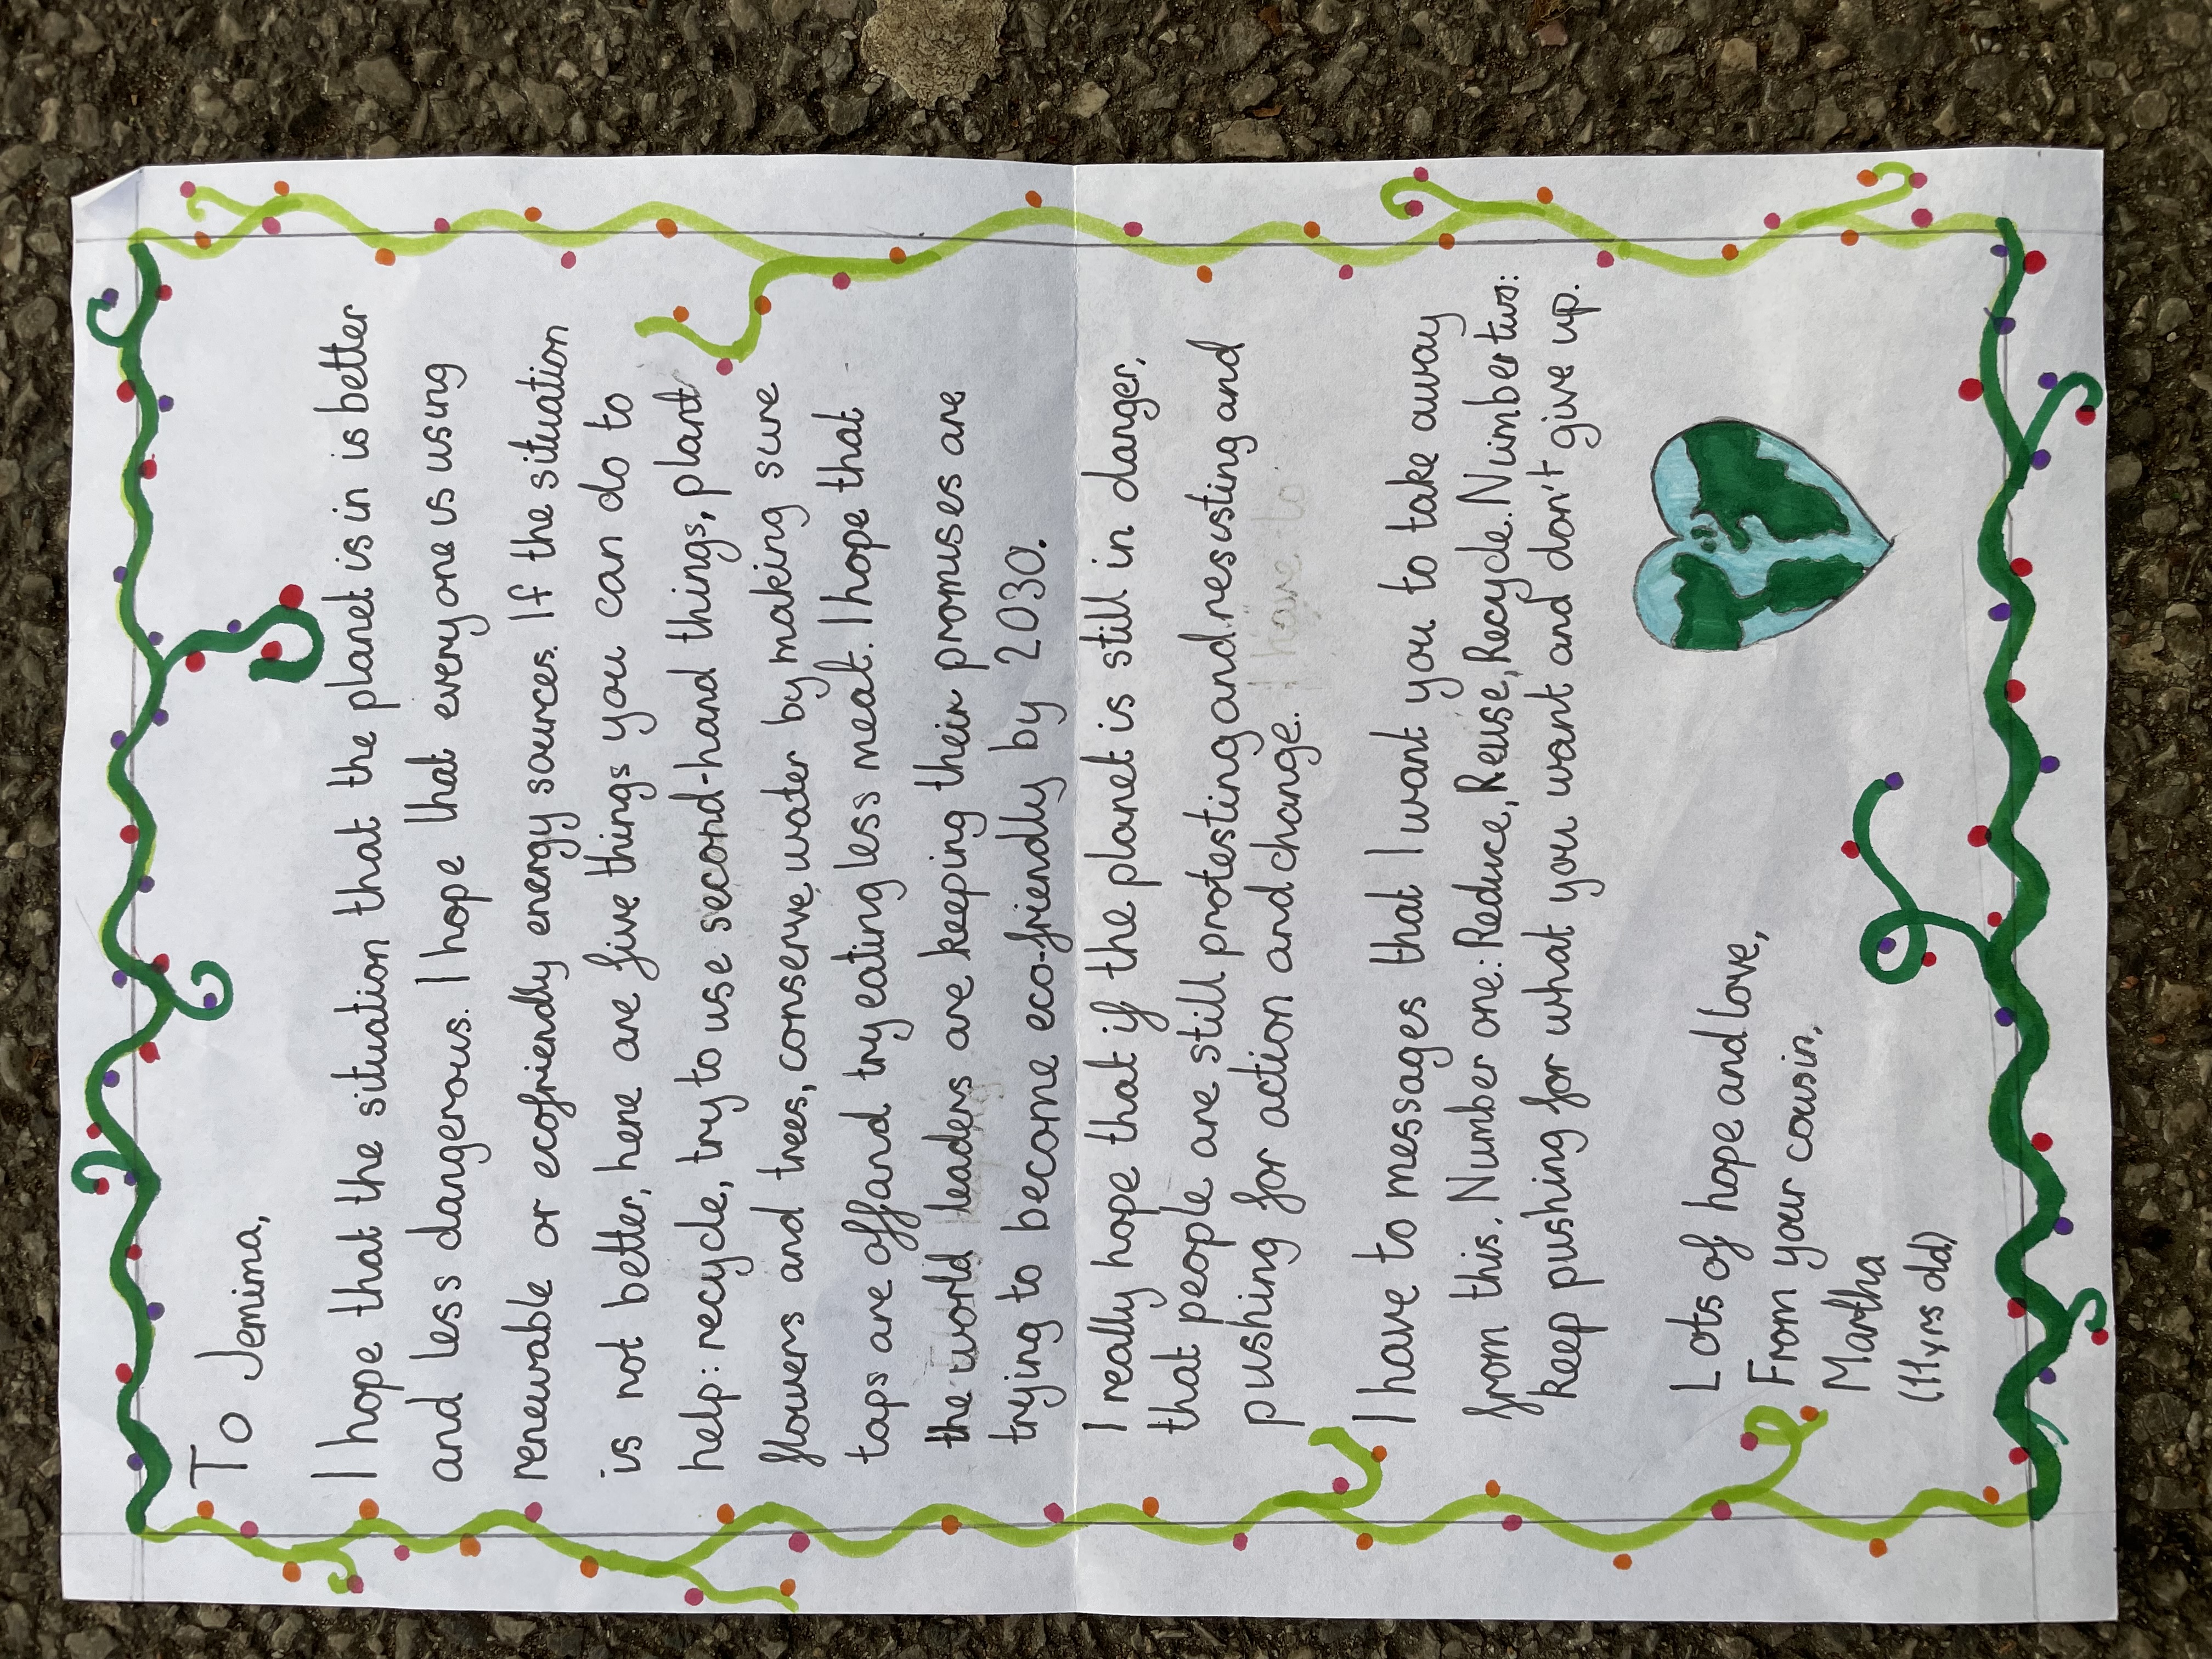 To Jemima,
I hope that the situation that the planet is in is better
and less dangerous. I hope that everyone is using
renewable or ecofriendly energy sources. If the situation
is not better, here are five things you can do to
help: recycle, try to use second-hand things, plant
flowers and trees, conserve water by making sure
taps are off and try eating less meat. I hope that
the world leaders are keeping their promises are
trying to become eco-friendly by 2030.
I really hope that if the planet is still in danger,
that people are still protesting and resisting and
pushing for action and change. I have to
I have to messages that I want you to take away
from this. Number one: Reduce, Reuse, Recycle. Number two:
keep pushing for what you want and don't give up.
Lots of hope and love,
From your cousin,
Martha
(11yrs old)